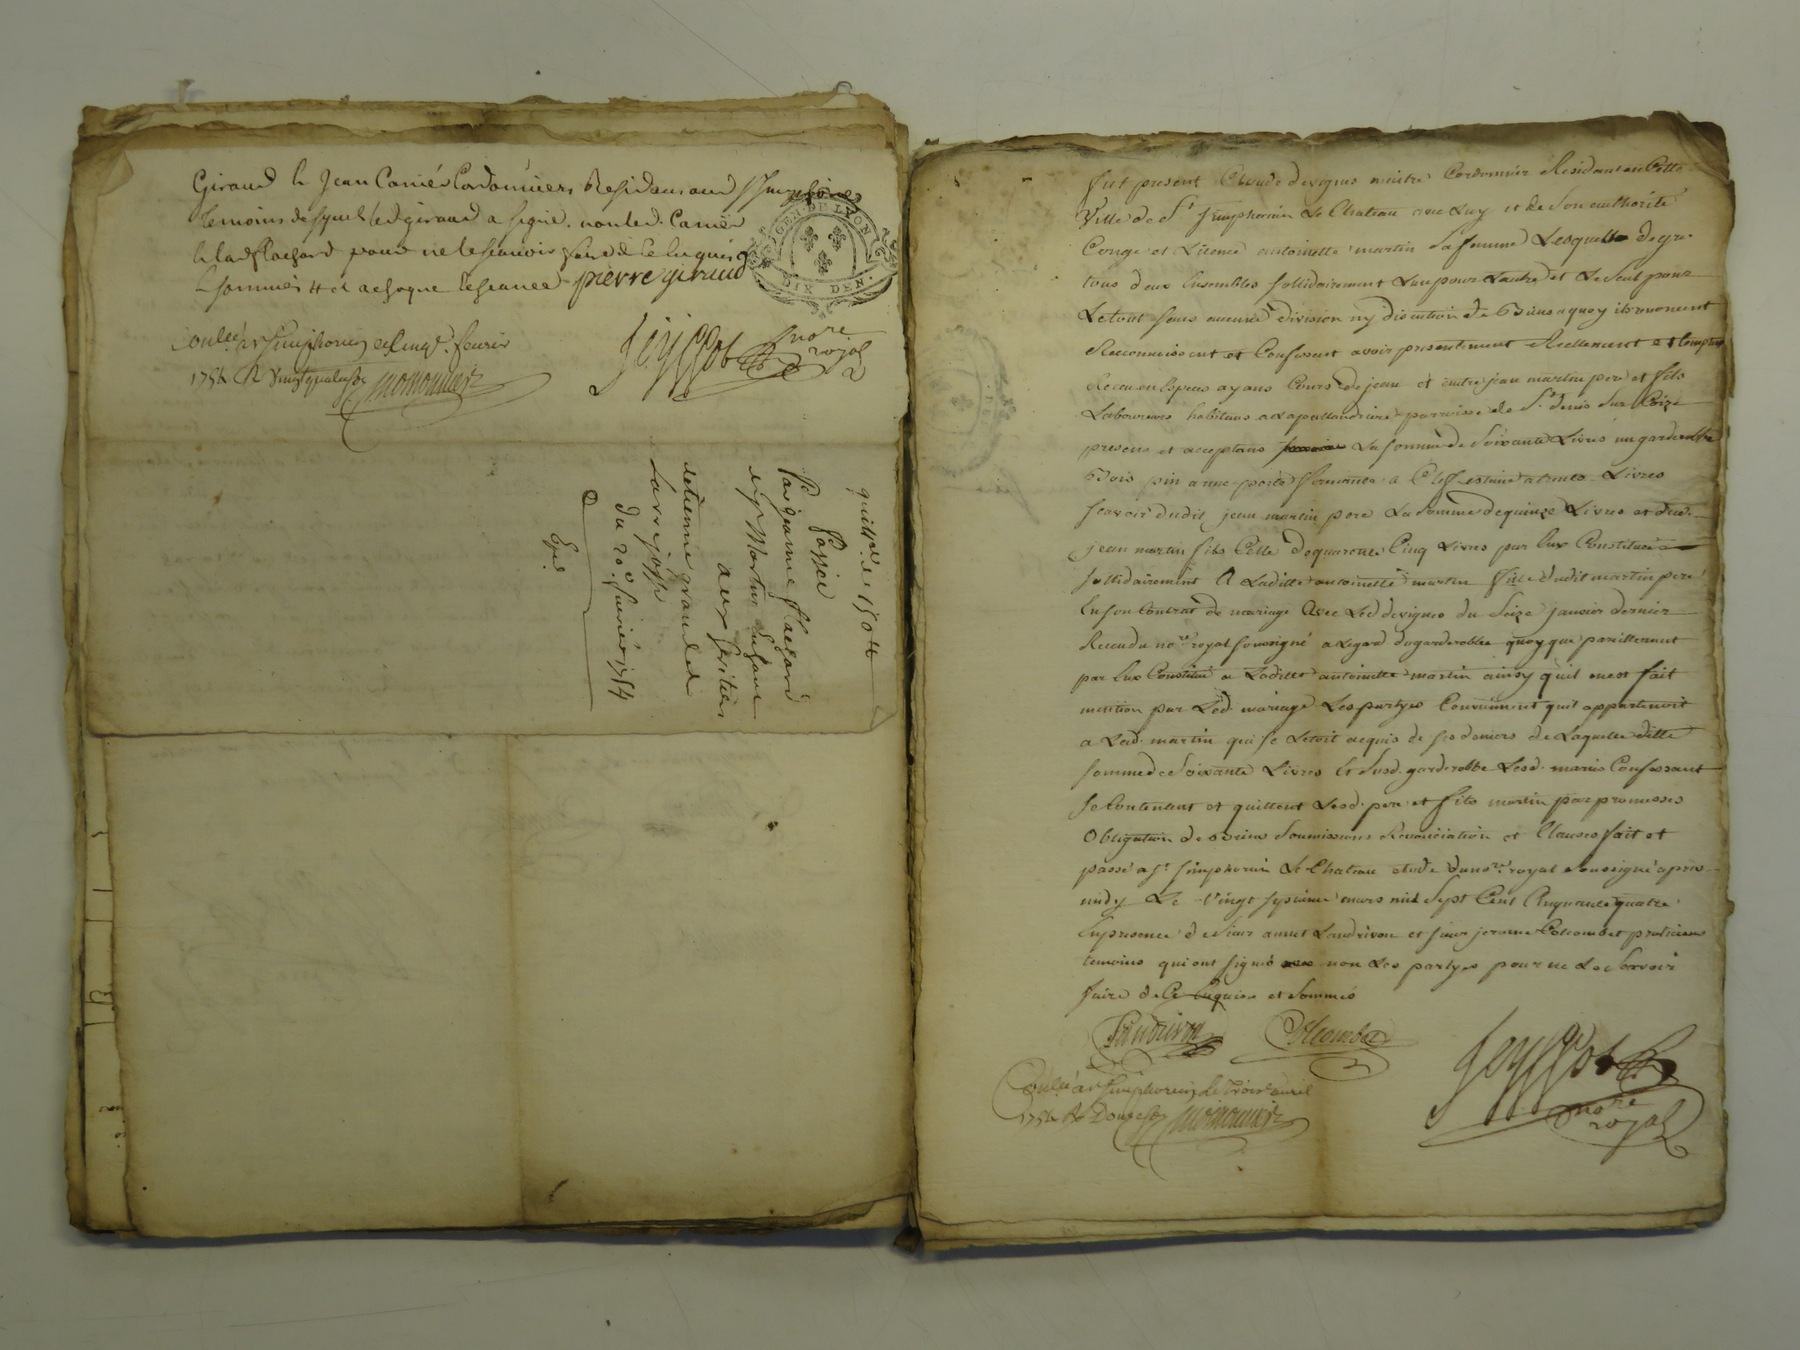 Giraud & Jean Carrier Cordonniers Residans aud St Simphorien
temoins desquels led giraud a signé. non led. Carrier
& lad flachard pour ne le scavoir faire de ce enquis
& sommés et a chaque seance pierre giraud
GEN. DE LYON
DIX DEN.
Conllé a st Simphorien le cinq fevrier
1754 R
no.re royal
quittce de 150 ₶
Passée
Par jeanne flachard
et Martin
aux heritiers
detienne giraud et
du 20 fevrier 1754
Expé
fut present Claude devignes maitre Cordonnier Residant en Cette
Ville de St Simphorien Le Chateau avec Luy et de Son authorité
Conge et Licence antoinette martin Sa femme Lesquels de gré
tous deux Ensembles sollidairement L'un pour L'autre et Le Seul pour
Le tout sans aucune division ny discution de Biens a quoy ils renoncent
Reconnoissent et Confessent avoir presentement Reellement et Comptant
Receu en Especes ayans Cours de jean et autre jean martin pere et fils
Laboureurs habitans a Lapallandriere parroisse de St denis Sur Coize
presens et acceptans La somme de Soixante Livres un garderobbe
Bois pin a une porte fermante a Clef estimé a trente Livres
scavoir dudit jean martin pere La somme de quinze Livres et dud.
jean martin fils Celle de quarente Cinq Livres par Eux Constituée
sollidairement A Laditte antoinette martin fille dudit martin pere
En son Contrat de mariage Avec Led devignes du Seize janvier dernier
Receu du nore royal soussigné a Legard du garderobbe quoy que pareillement
par Eux Constitué a Laditte antoinette martin ainsy qu'il en est fait
mention par Led. mariage Les partyes Conviennent quil appartenoit
a Lad. martin qui se Letoit acquis de ses deniers de Laquelle ditte
somme de Soixante Livres & Susd. garderobbe Lesd. mariés Confessant
se Contentent et quittent Lesd. pere et fils martin par promesses
Obligation de Biens Soumissions Renonciation et Clauses fait et
passé a St Simphorien Le Chateau etude du nore royal soussigné apres
midy Le Vingt septieme mars mil Sept Cent Cinquante quatre
En presence de Sieur annet Landrivon et sieur jerome Colcombet praticiens
temoins qui ont signé non Les partyes pour ne Le Scavoir
faire de Ce Enquises et Sommés
Landrivon Colcombet
Conllé a st Simphorien le Trois avril
1754 R Douze sols
no.re royal